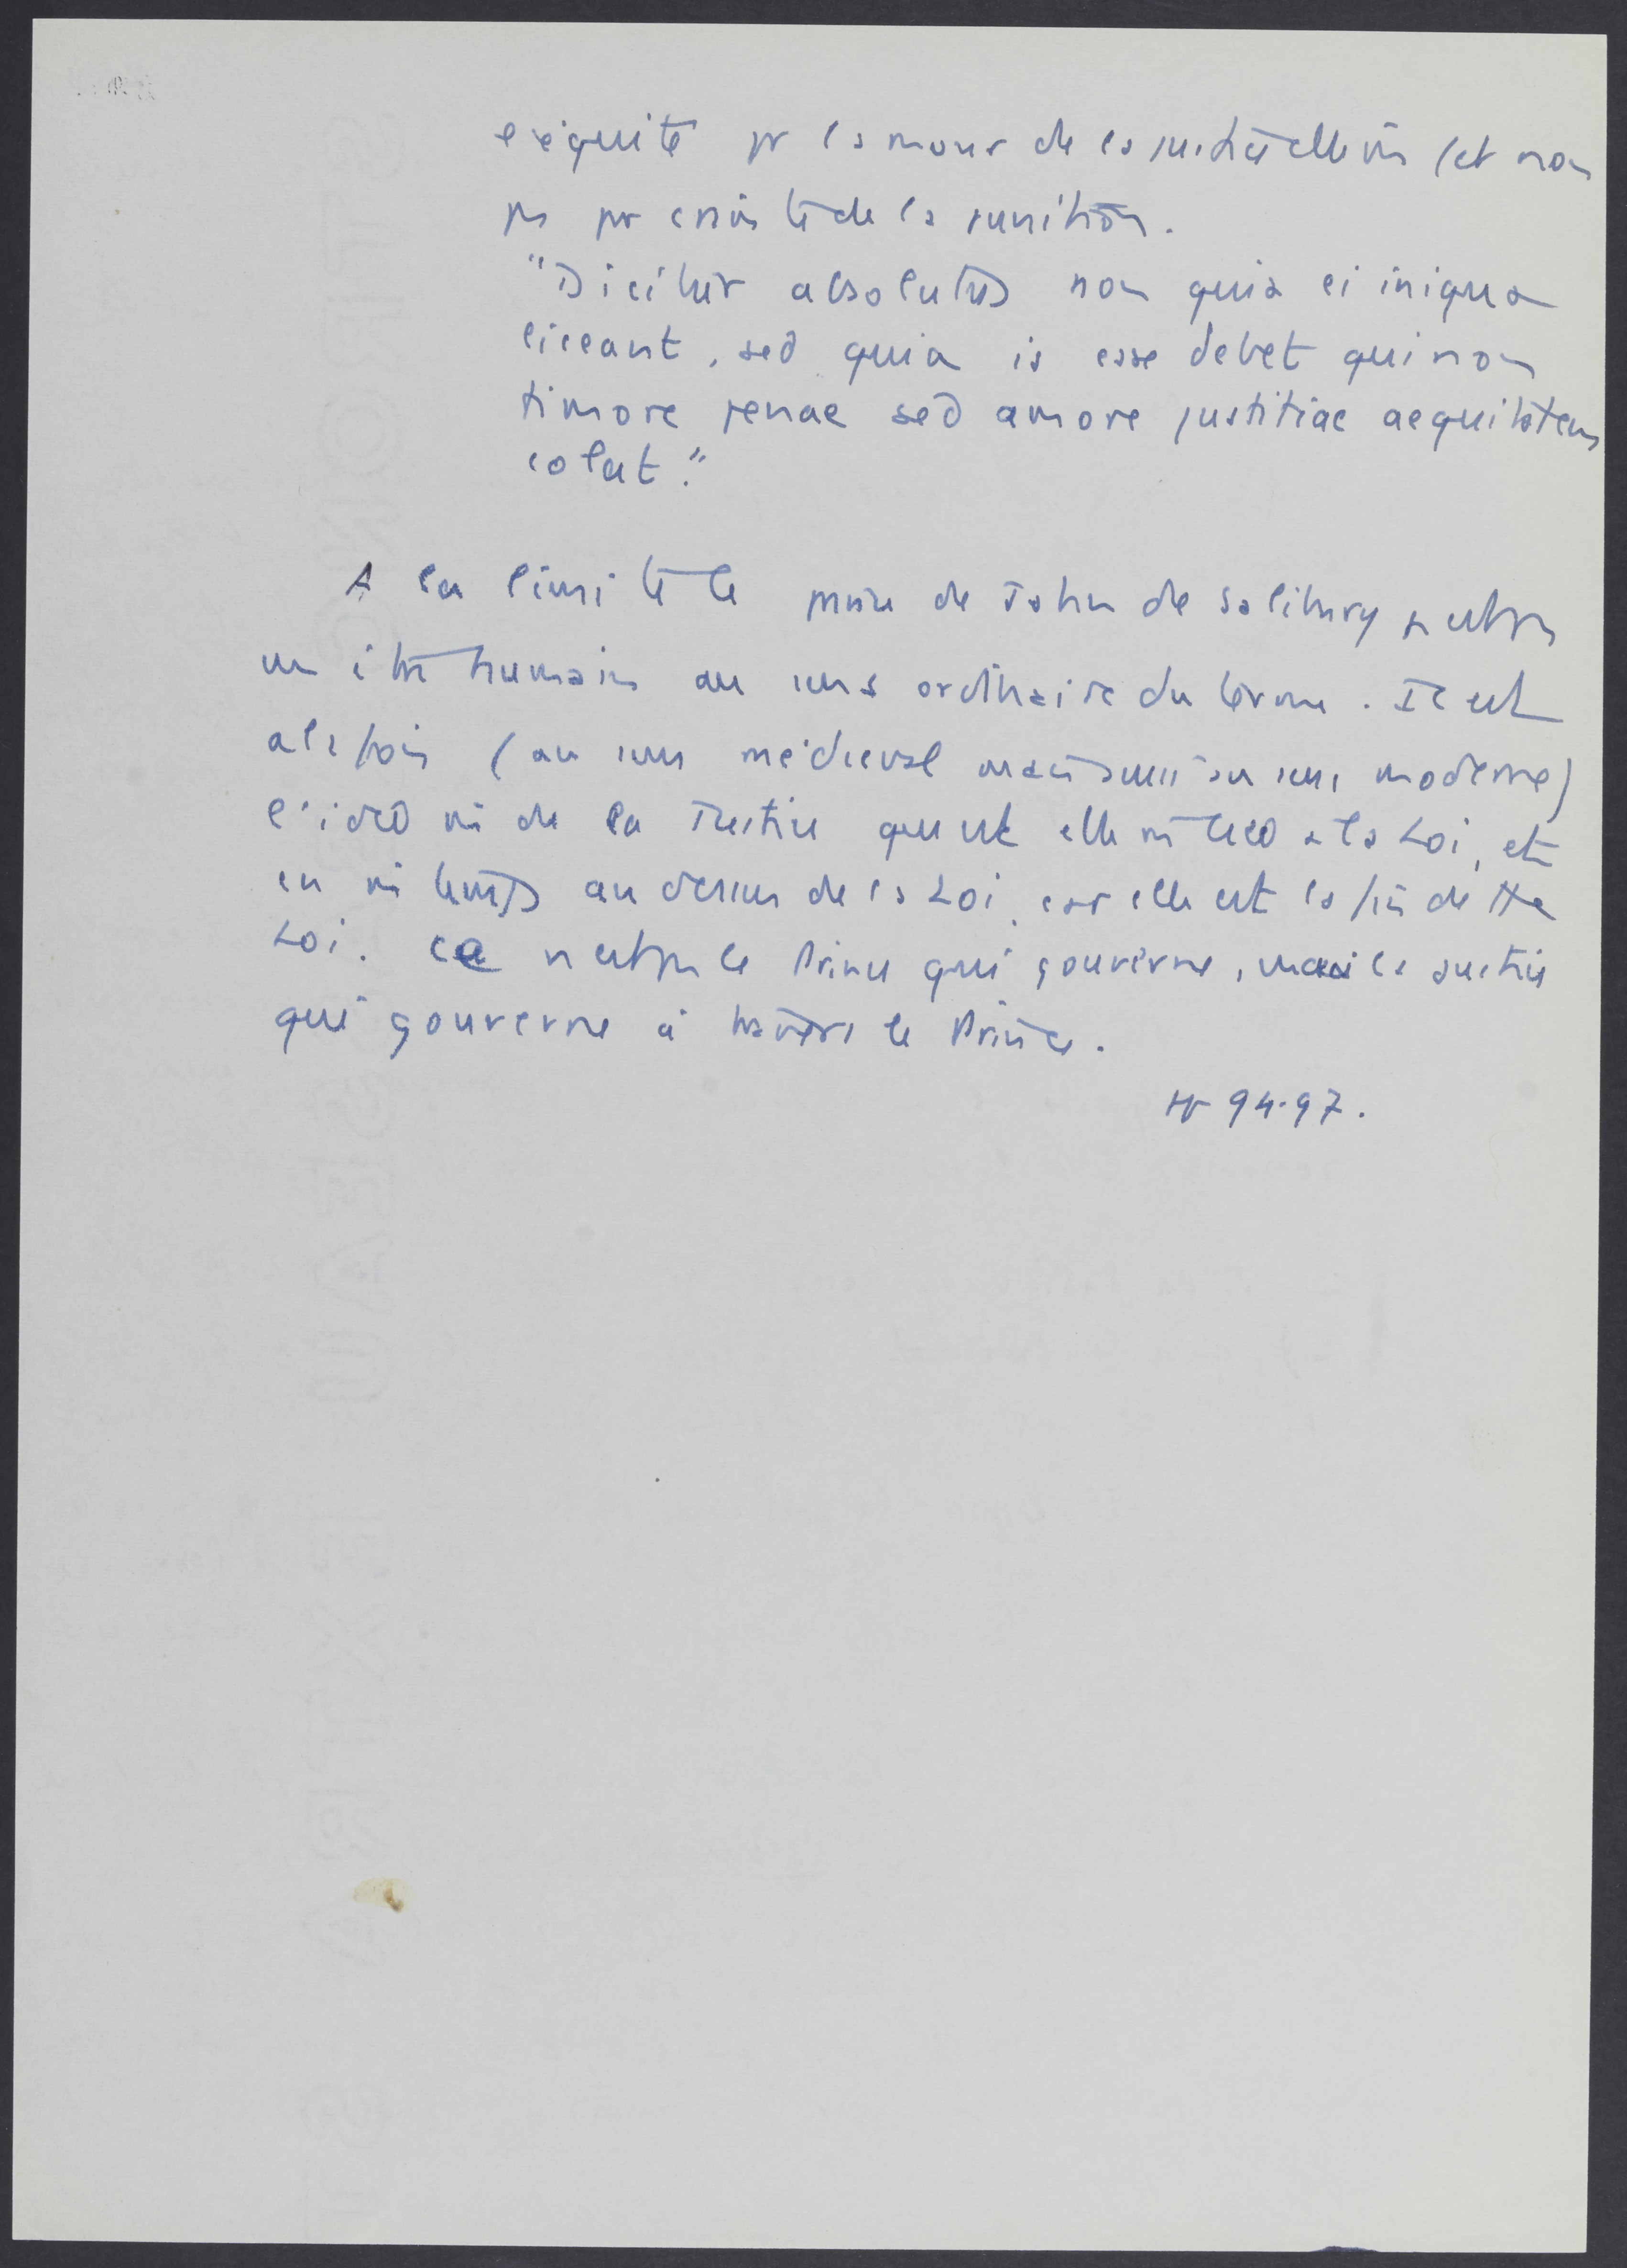 l'équité pr l'amour de la justice elle m̂ (et non
pas pr crainte de la punition.
"Dicitur absolutus non quia ei iniqua
liceant, sed quia is esse debet qui non
timore penae sed amore justitiae aequitatem
colat."
A la limite le prince de John de Salisbury n'est pas
un être humain au sens ordinaire du terme. Il est
à la fois (au sens médiéval mais aussi au sens moderne)
l'idée m̂ de la Justice qui est elle m̂ liée à la Loi, et
en m̂ temps au dessus de la Loi, car elle est la fin de tte
Loi. Ce n'est pas le Prince qui gouverne, mais la justice
qui gouverne à travers le Prince.
pp 94-97.